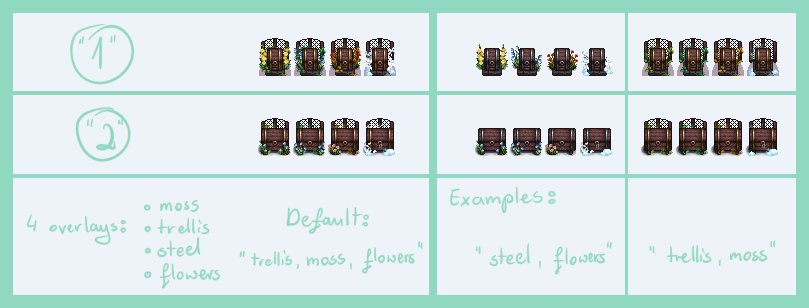 "1"
"2"
4 overlays:
• moss
• trellis
• steel
• flowers
Default:
"trellis, moss, flowers"
Examples:
"steel, flowers"
"trellis, moss"